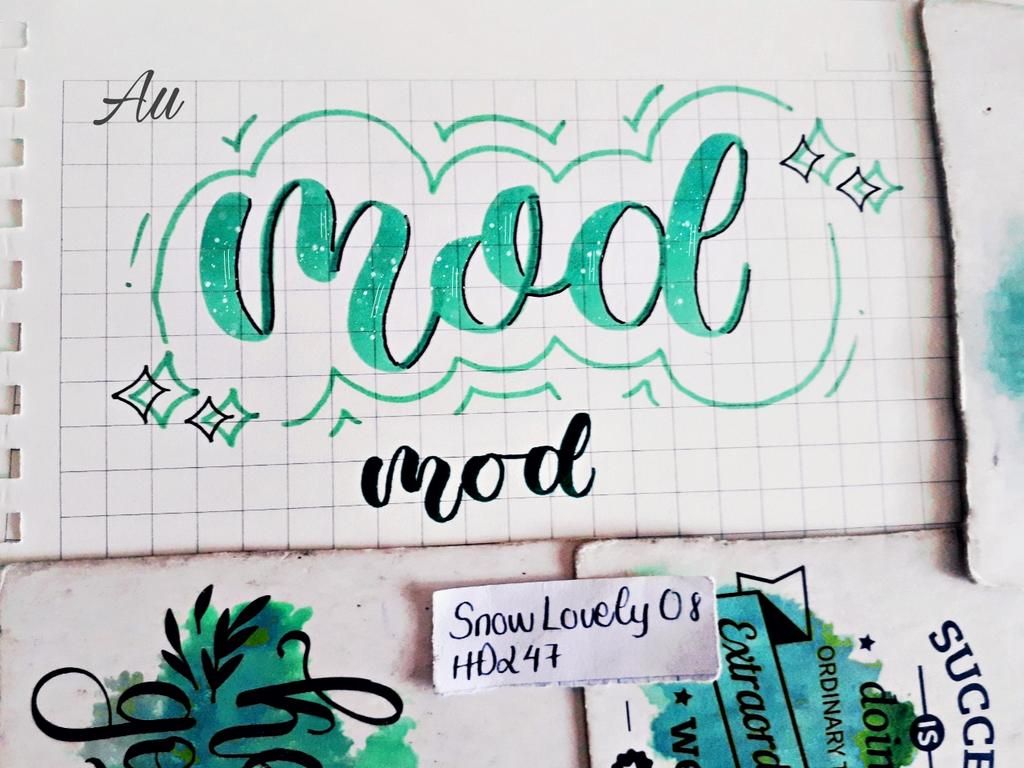 Au
mod
mod
Snow Lovely 08
HDα247
Extraord
ORDINARY T
doin
SUCCE
IS
We